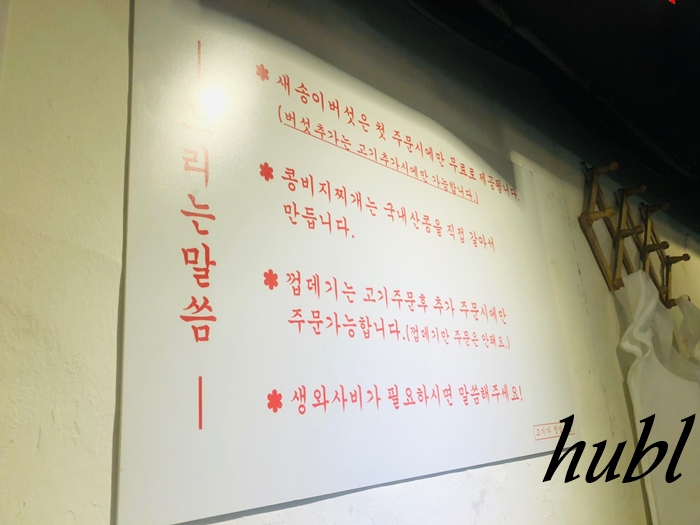 리는말씀
✽ 새송이버섯은 첫 주문시에만 무료로 제공됩니다.
(버섯추가는 고기추가시에만 가능합니다.)
✽ 콩비지찌개는 국내산콩을 직접 갈아서
만듭니다.
✽ 껍데기는 고기주문후 추가 주문시에만
주문가능합니다.(껍데기만 주문은 안돼요.)
✽ 생와사비가 필요하시면 말씀해주세요!
hubl